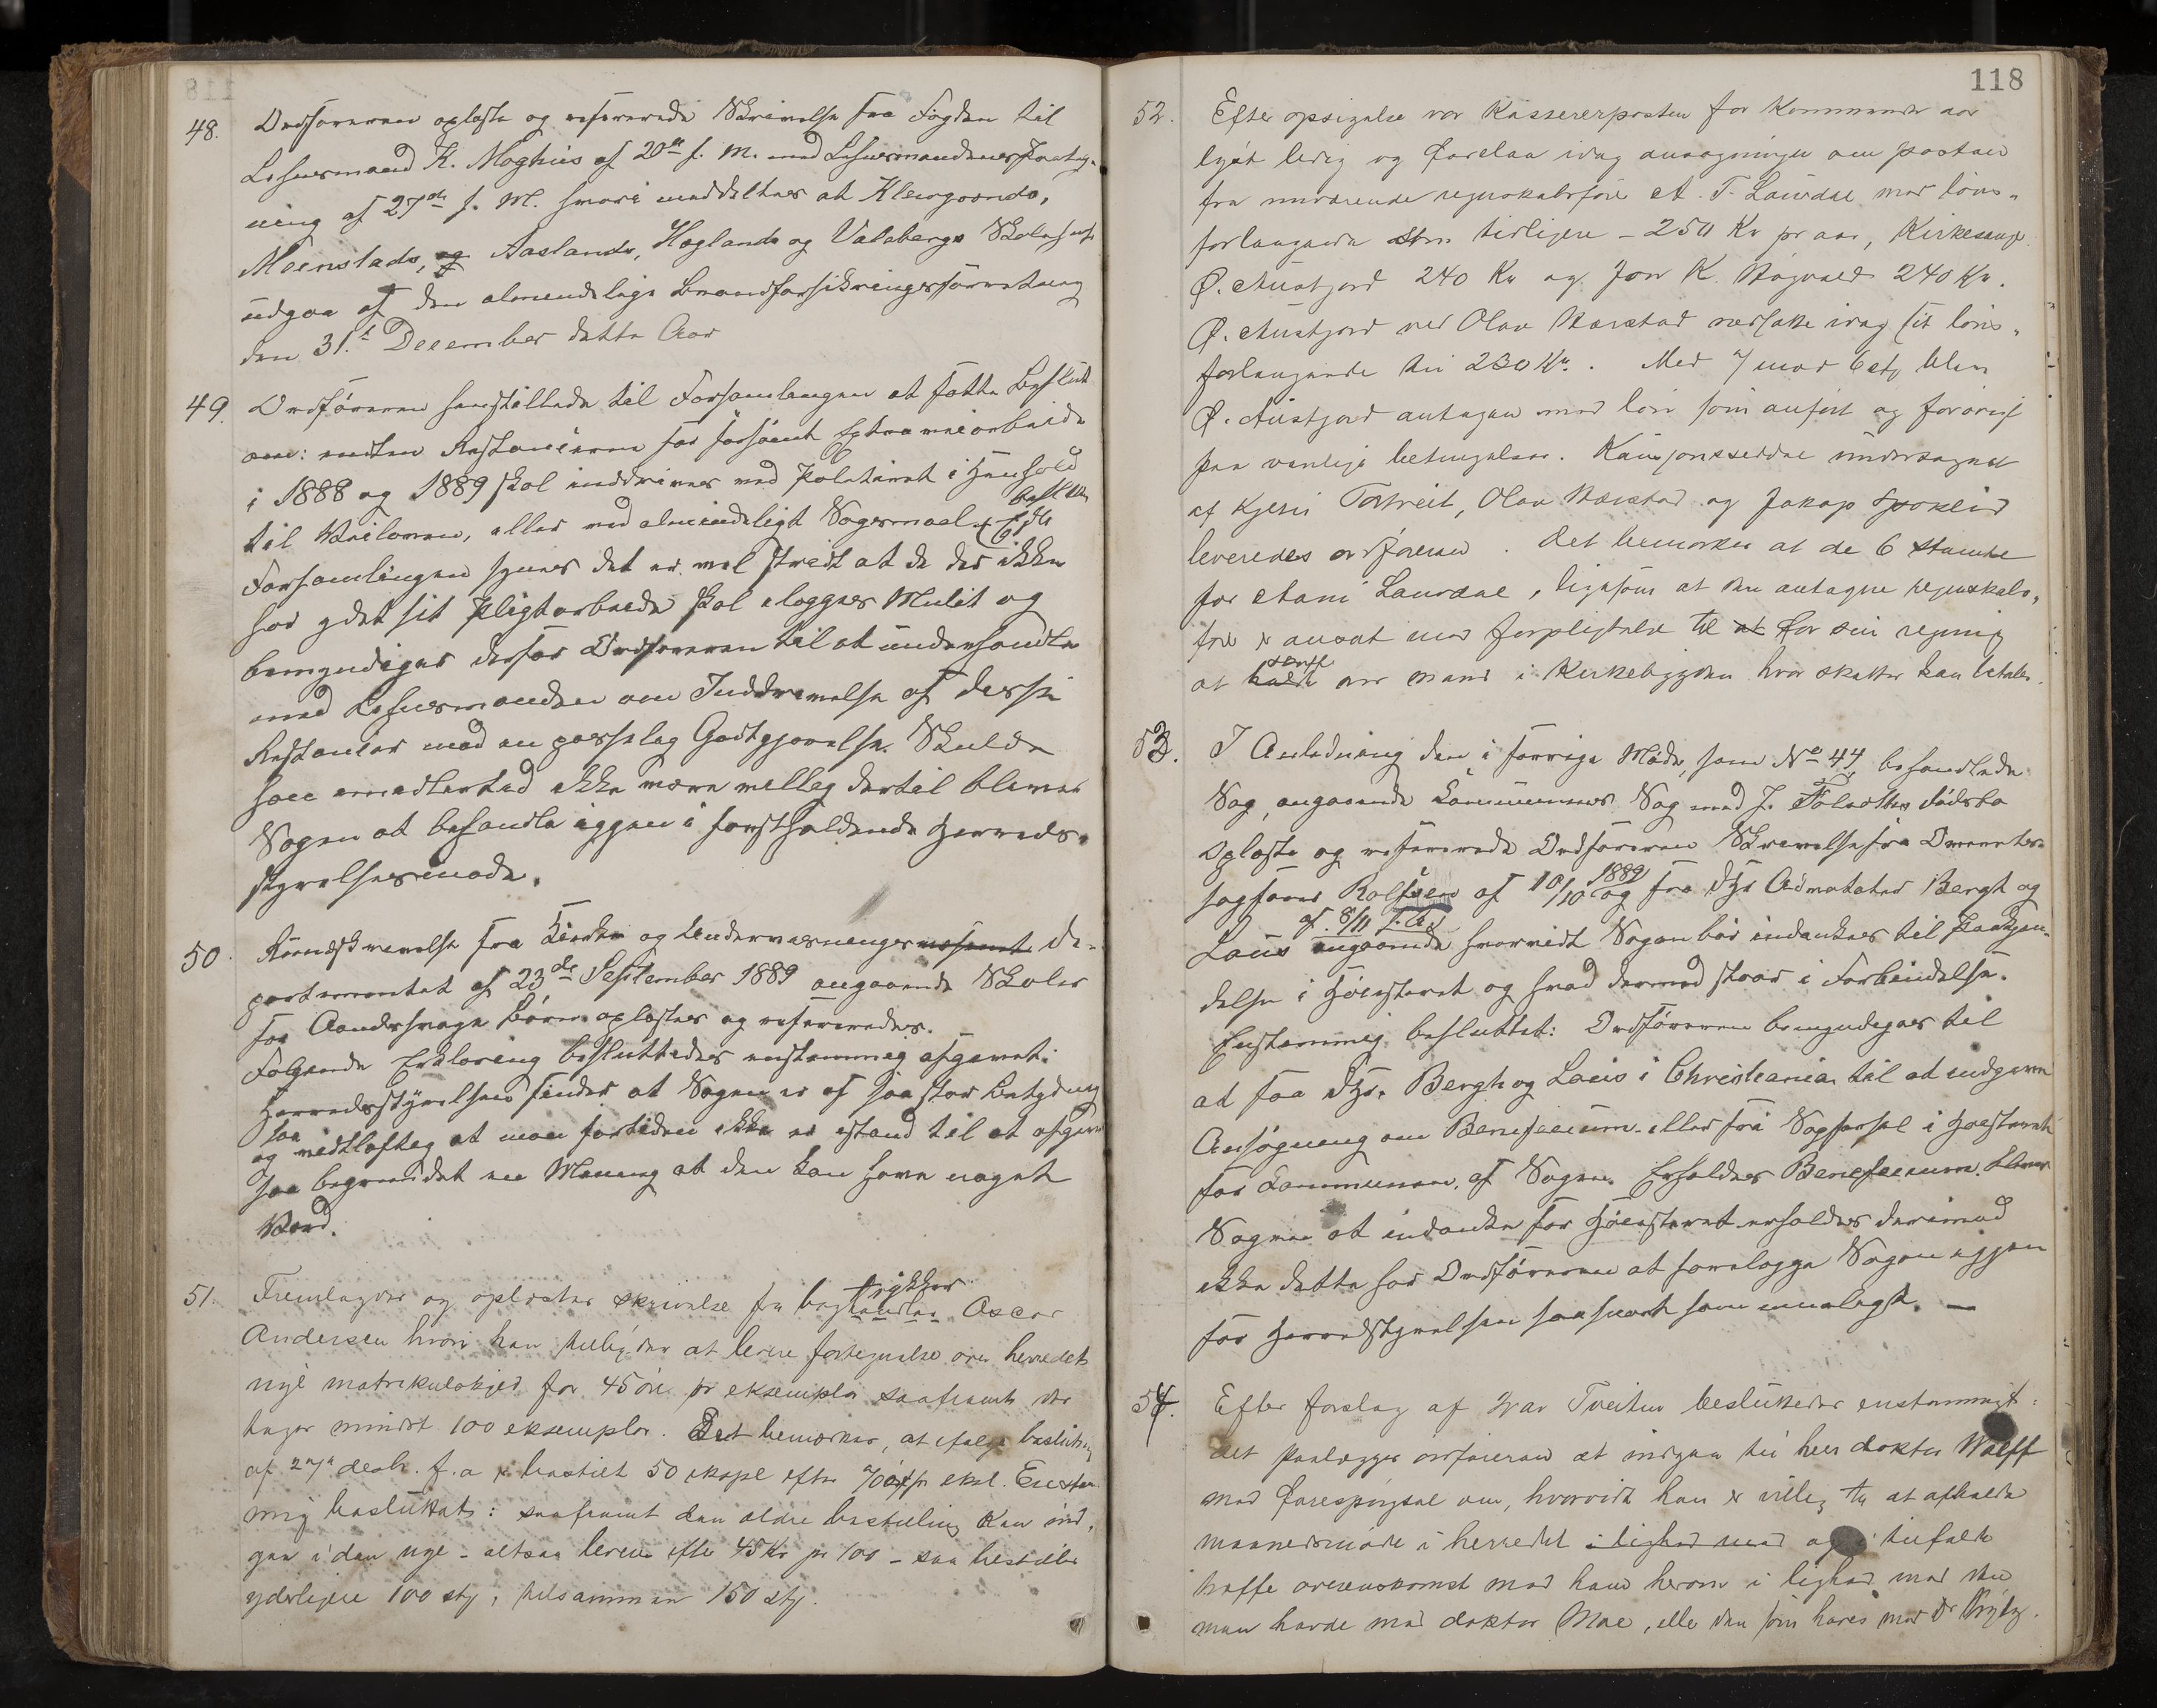 118
48. Ordføreren oplæste og refererede Skrivelse fra Fogden til
Lehnsmand K. Moghus af 20de f. M. med Lehnsmandens Paateg-
ning af 27de f. M. hvori meddeltes at
Moenstads, og Aaslands, Høglands og Valebergs Skolehuse
udgaa af den almindelige Brandforsikringsforretning
den 31te December dette Aar
49. Ordføreren henstillede til Forsamlingen at fatte Beslut
om: enten Restancerne for forsømt Extraveiarbeide
i 1888 og 1889 skal inddrives med Politiret i Henhold
til Veiloven, eller ved almindeligt Søgsmaal
Forsamlingen synes det er vel stridt at de der ikke
har ydet sit Pligtarbeide skal ilægges Mulct og
bemyndiges derfor Ordføreren til at underhandle
med Lehnsmanden om Inddrivelse af disse
Restancer mod en passelig Godtgjørelse. Skulde
han imidlertid ikke være villig dertil bliver
Sagen at behandle igjen i førstholdende Herreds-
styrelsesmøde.
50. Rundskrivelse fra Kirke og Undervisnings De-
partementet af 23de September 1889 angaaende Skoler
for Aandssvage Børn oplæstes og refereredes.
Følgende Erklæring besluttedes enstemmig afgivet:
Herredsstyrelsen finder at Sagen er af saa stor Betydning
og saa vidtløftig at man fortiden ikke er istand til at afgive
saa begrundet en Mening at den kan have noget
Værd.
51. Fremlagdes og oplæstes skrivelse fra bogtrykker Oscar
Andersen hvori han tilbyder at levere fortegnelse over herredets
nye matrikulskyld for 45 øre pr eksemplar saafremt der
tages mindst 100 eksemplar. Det bemærkes, at ifølge beslutning
af 27de desb. f. a er bestilt 50 ekspl efter 70 øre pr eksl. Enstem-
mig besluttet: saafremt den ældre bestilling kan ind-
gaa i den nye - altsaa levere efter 45 Kr pr 100 - saa bestilles
yderligere 100 stk, tilsammen 150 stk.
52. Efter opsigelse var Kassererposten for Kommunen
lyst ledig og forelaa idag ansøgninger om posten
fra nuværende regnskabsfører A. T. Laurdal med løns-
forlangende som tidligere - 250 Kr pr aar, Kirkesanger
Ø. Austjord 240 Kr og Jon K. Bøgvald 240 Kr.
Ø. Austjord ved Olav Bærstad nedsatte idag sit løns-
forlangende til 230 Kr. Med 7 mod 6 st. blev
Ø. Austjord antagen med løn som anført og forøvrigt
paa vanlige betingelser. Kausjonsseddel undertegnet
af Kjetil Tortveit, Olav Bærstad og Jakop Spokelid
leveredes ordføreren. Det bemærkes at de 6 stemte
for Aani Laurdal, ligesom at den antagne regnskabs-
fører er ansat med forpligtelse til at for sin regning
at skaffe en mand i Kirkebygden hvor skatter kan betales.
53. I Anledning den i forrige Møde, som No 44, behandlede
Sag, angaaende Kommunens Sag med J. Dødsbo
oplæste og refererede Ordføreren Skrivelse fra Overrets-
sagfører Rolfsen af 10/10 1889 og fra Hrr Advokater Bergh og
Lous af 8/11 f. A. angaaende hvorvidt Sagen bør indankes til Paakjen-
delse i Høiesteret og hvad dermed staar i Forbindelse.
Enstemmig besluttet: Ordføreren bemyndiges til
at faa Hrr. Bergh og Lous i Christiania til at indgive
Ansøgning om Beneficium eller fri Sagførsel i Høiesteret
for Kommunen, af Sagen. Erholdes Beneficium bliver
Sagen at indanke for Høiesteret erholdes derimod
ikke dette har Ordføreren at forelægge Sagen igjen
for Herredstyrelsen saasnart som muligt. —
54. Efter forslag af Ivar Tveiten besluttedes enstemmigt:
det paalægges ordføreren at indgaa til herr doktor Wulff
med forespørgsel om, hvorvidt han er villig til at afholde
maanedsmøde i herredet i lighed med og i tilfælde
træffe overenskomst med ham herom i lighed med den
man havde med doktor Moe, eller den som haves med Dr